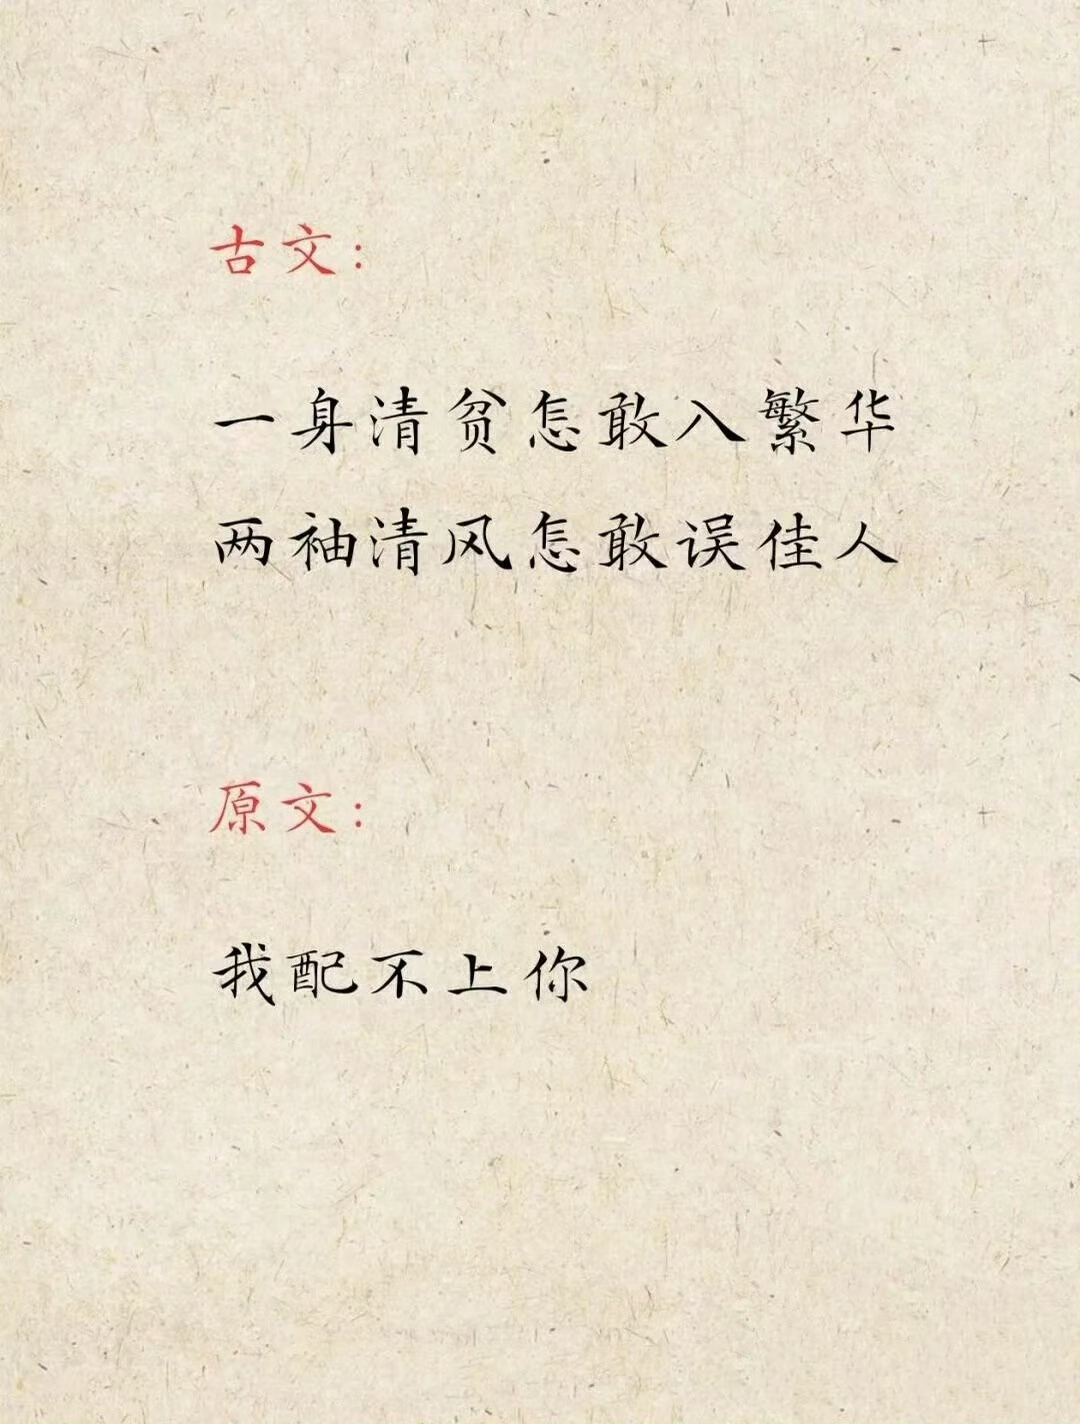 古文：
一身清贫怎敢入繁华
两袖清风怎敢误佳人
原文：
我配不上你